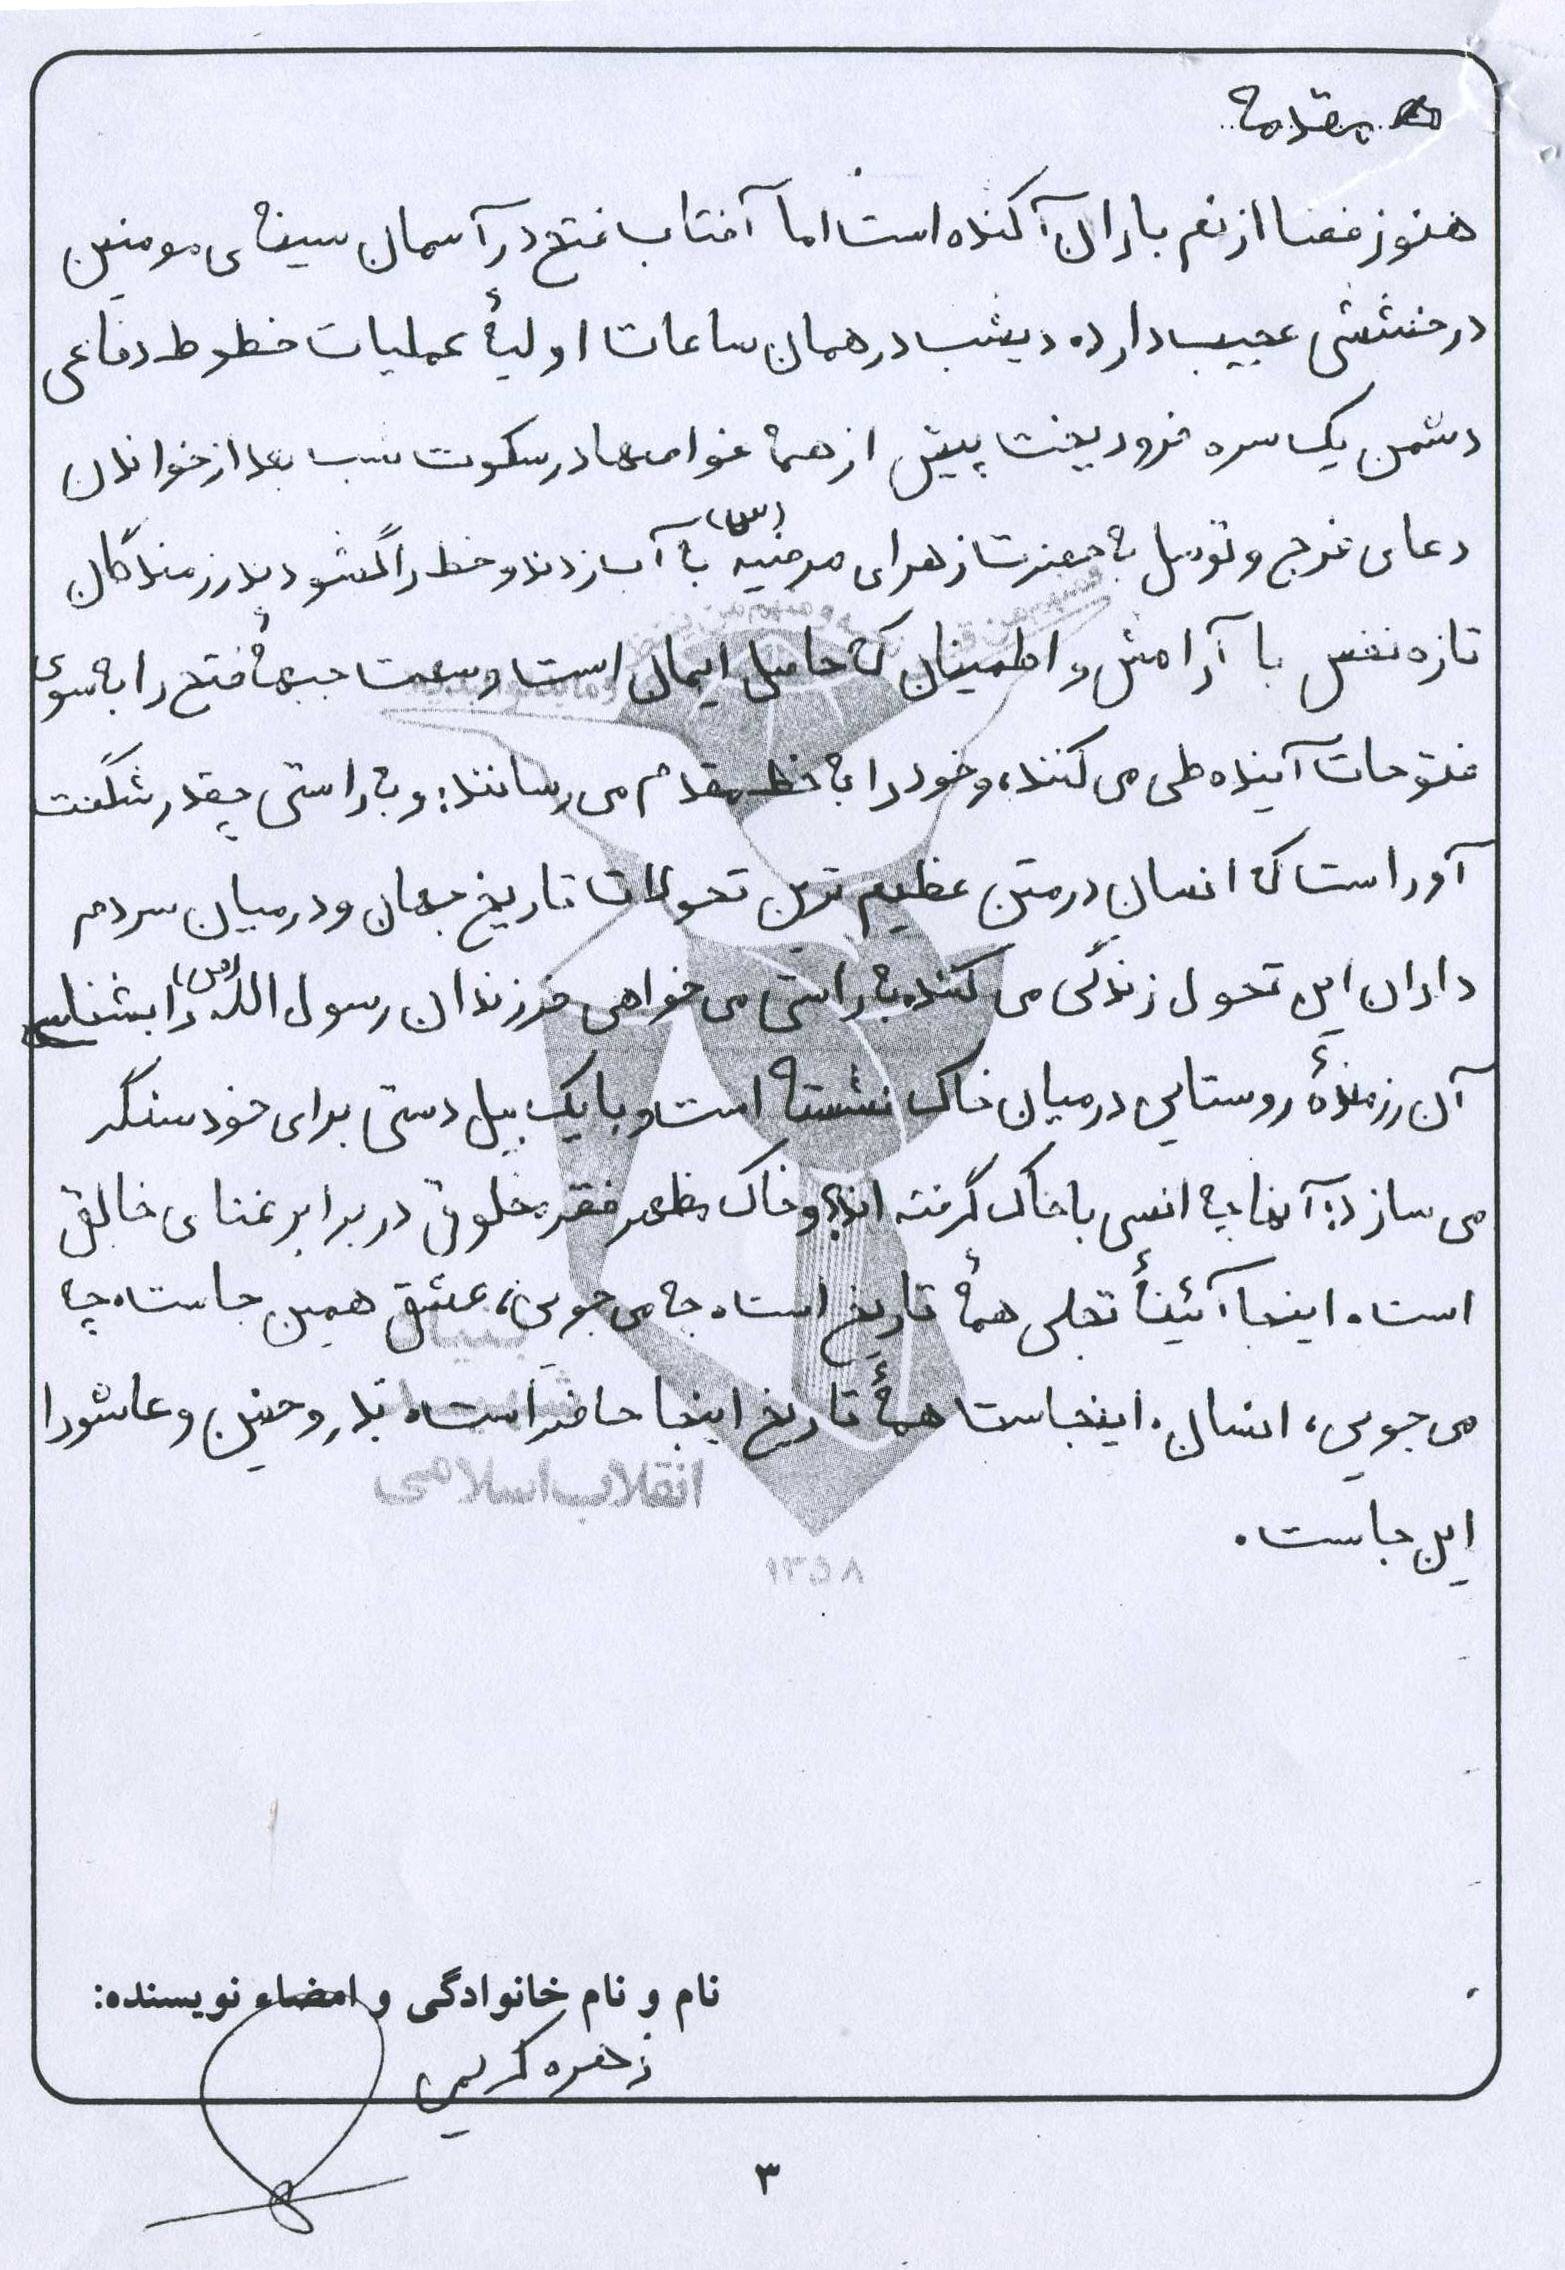 مقدمه
هنوز فضا از نم باران آکنده است اما آفتاب فتح در آسمان سینهٔ مومنین
درخششی عجیب دارد. دیشب در همان ساعات اولیهٔ عملیات خطوط دفاعی
دشمن یک سره فرو ریخت پیش از همه غواص‌ها در سکوت شب بعد از خواندن
دعای فرج و توسل به حضرت زهرای مرضیه (س) به آب زدند و خط را گشودند رزمندگان
تازه نفس با آرامش و اطمینان که حاصل ایمان است وسعت جبههٔ فتح را به سوی
فتوحات آینده طی می کنند، و خود را به خط مقدم می رسانند؛ و به راستی چقدر شگفت
آور است که انسان در متن عظیم ترین تحولات تاریخ جهان و در میان سردم
داران این تحول زندگی می کند. به راستی می خواهی فرزندان رسول الله (ص) را بشناسی
آن رزمندهٔ روستایی در میان خاک نشسته است و با یک بیل دستی برای خود سنگر
می سازد؛ آنها چه انسی با خاک گرفته اند، و خاک مظهر فقر مخلوق در برابر غنای خالق
است. اینجا آئینهٔ تجلی همهٔ تاریخ است. چه می جویی، عشق همین جاست. چه
می جویی، انسان. اینجاست همهٔ تاریخ اینجا حاضر است. بدر و حنین و عاشورا
این جاست.
انقلاب اسلامی
۱۳۵۸
نام و نام خانوادگی و امضاء نویسنده:
زهره کریمی
۳